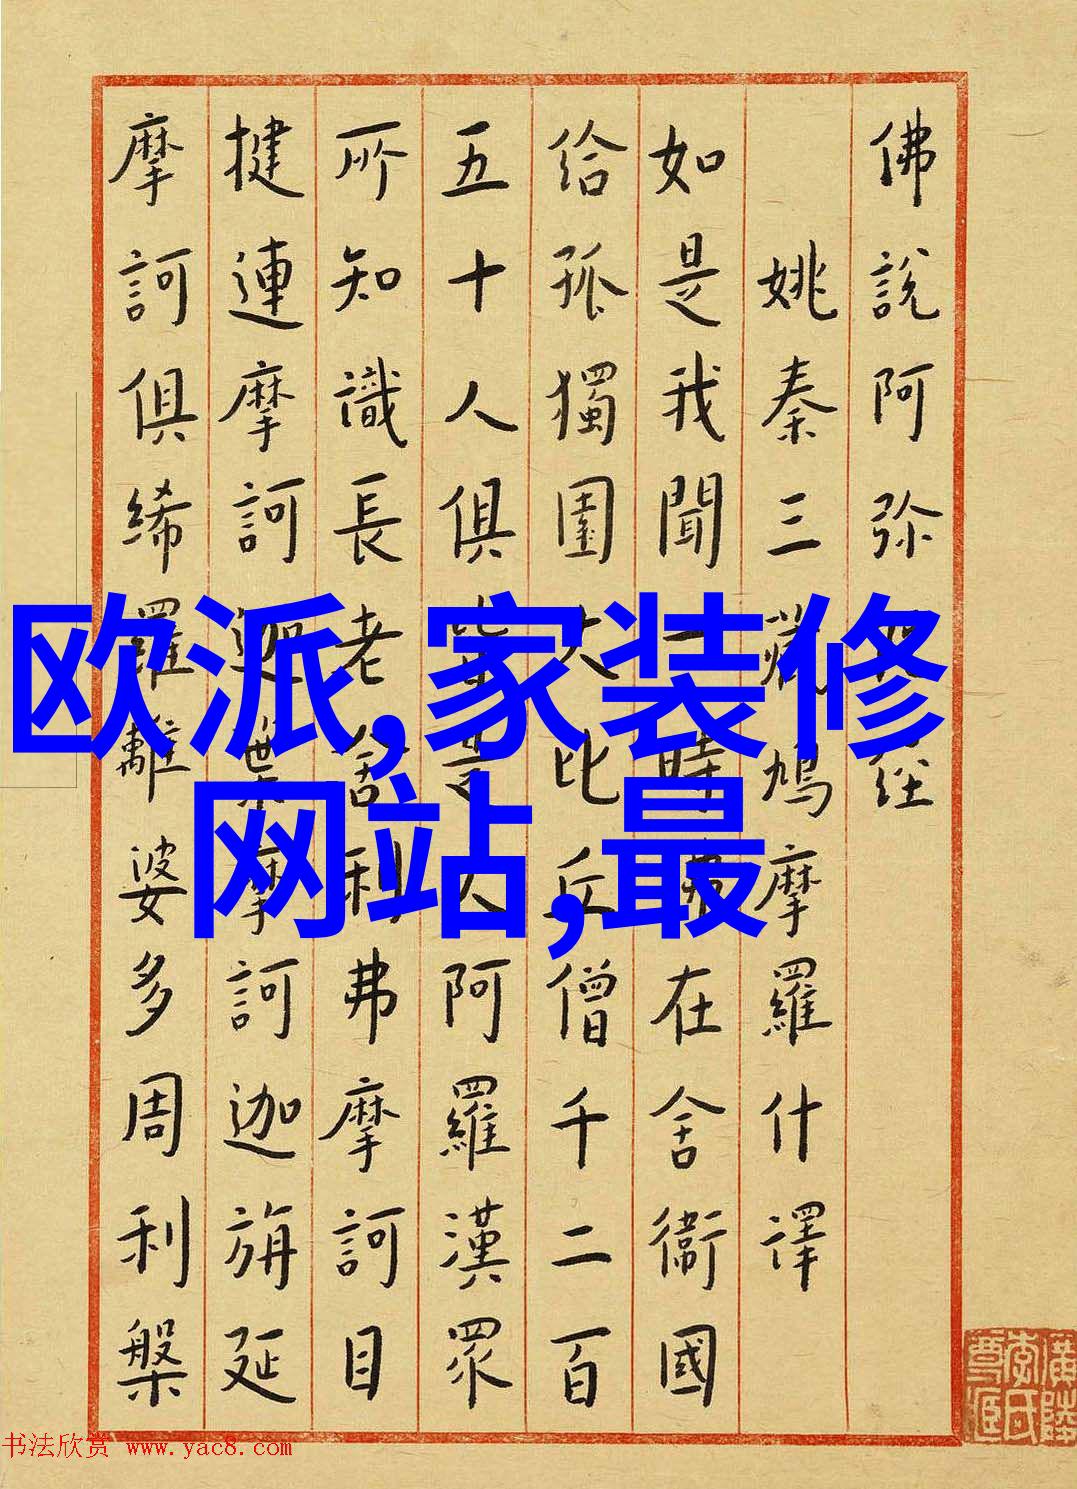 佛說阿弥陀经
姚秦三藏鳩摩羅什譯
如是我聞一時佛在舍衛國
给孤獨園大比丘僧千二百
五十人俱皆是大阿羅漢眾
所知識長老舍利弗摩訶目
揵連摩訶迦葉摩訶迦旃延
摩訶俱絺羅離婆多周利槃
欧派,家装修
网站,最
书法欣赏 www.yac8.com